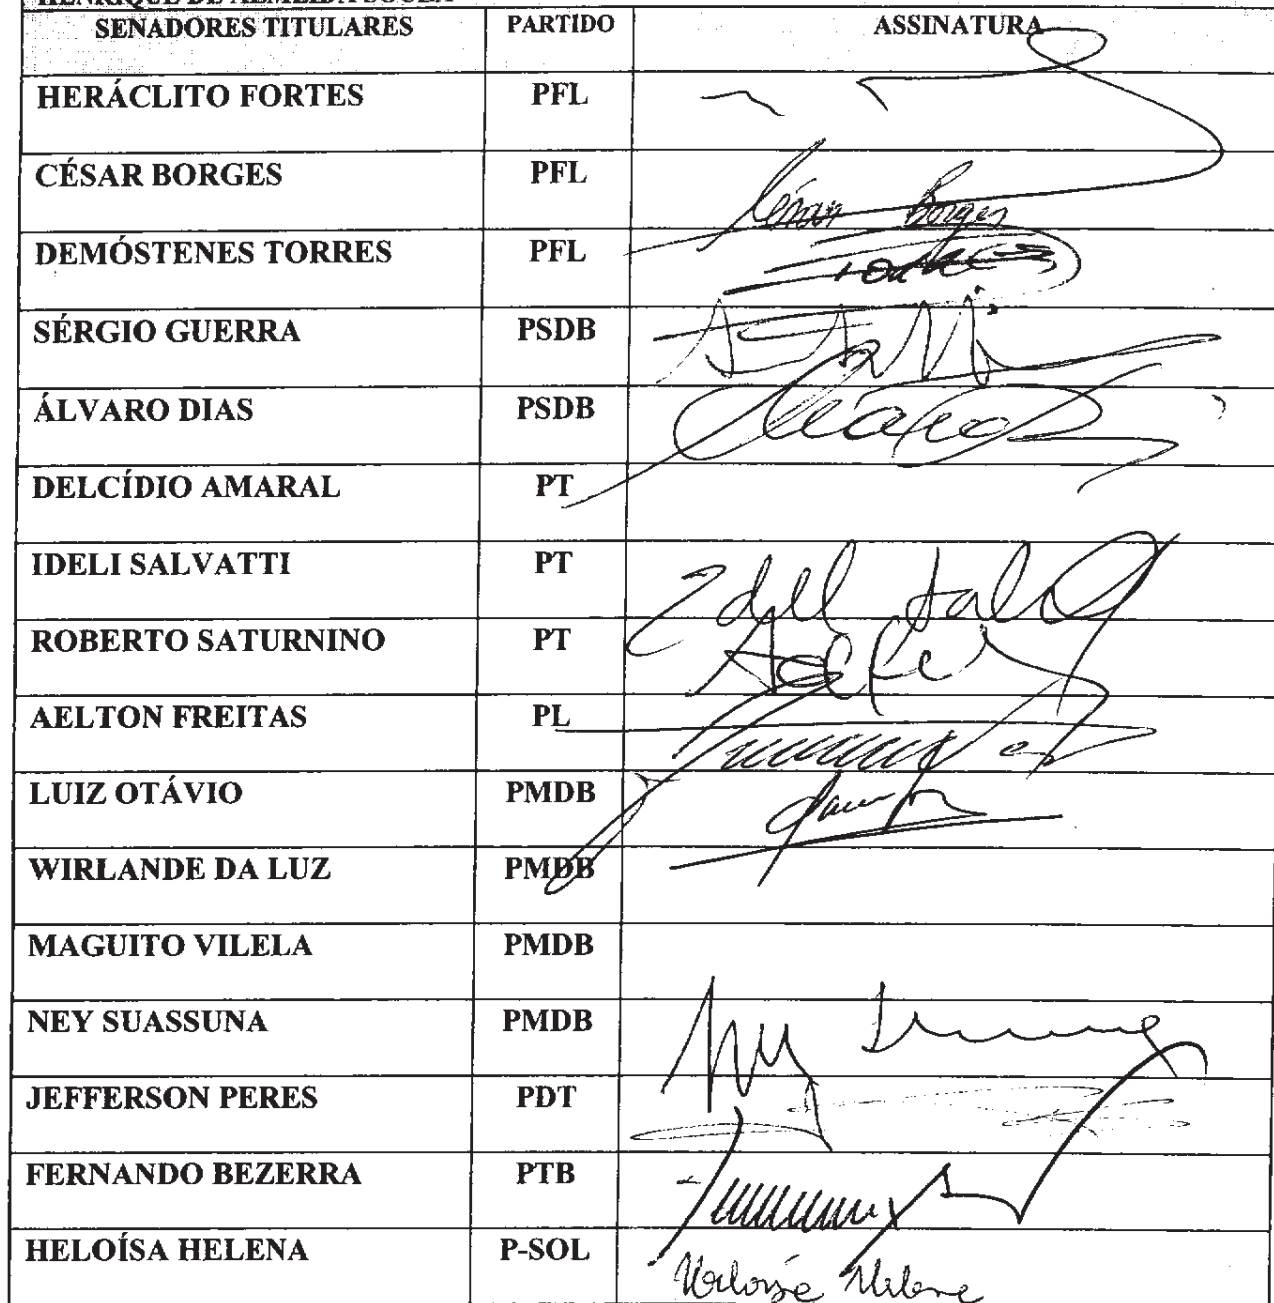 HENRIQUE DE ALMEIDA SOUZA
SENADORES TITULARES PARTIDO ASSINATURA
HERÁCLITO FORTES PFL
CÉSAR BORGES PFL César Borges
DEMÓSTENES TORRES PFL
SÉRGIO GUERRA PSDB
ÁLVARO DIAS PSDB
DELCÍDIO AMARAL PT
IDELI SALVATTI PT
ROBERTO SATURNINO PT
AELTON FREITAS PL
LUIZ OTÁVIO PMDB
WIRLANDE DA LUZ PMDB
MAGUITO VILELA PMDB
NEY SUASSUNA PMDB Ney
JEFFERSON PERES PDT
FERNANDO BEZERRA PTB
HELOÍSA HELENA P-SOL Heloísa Helena